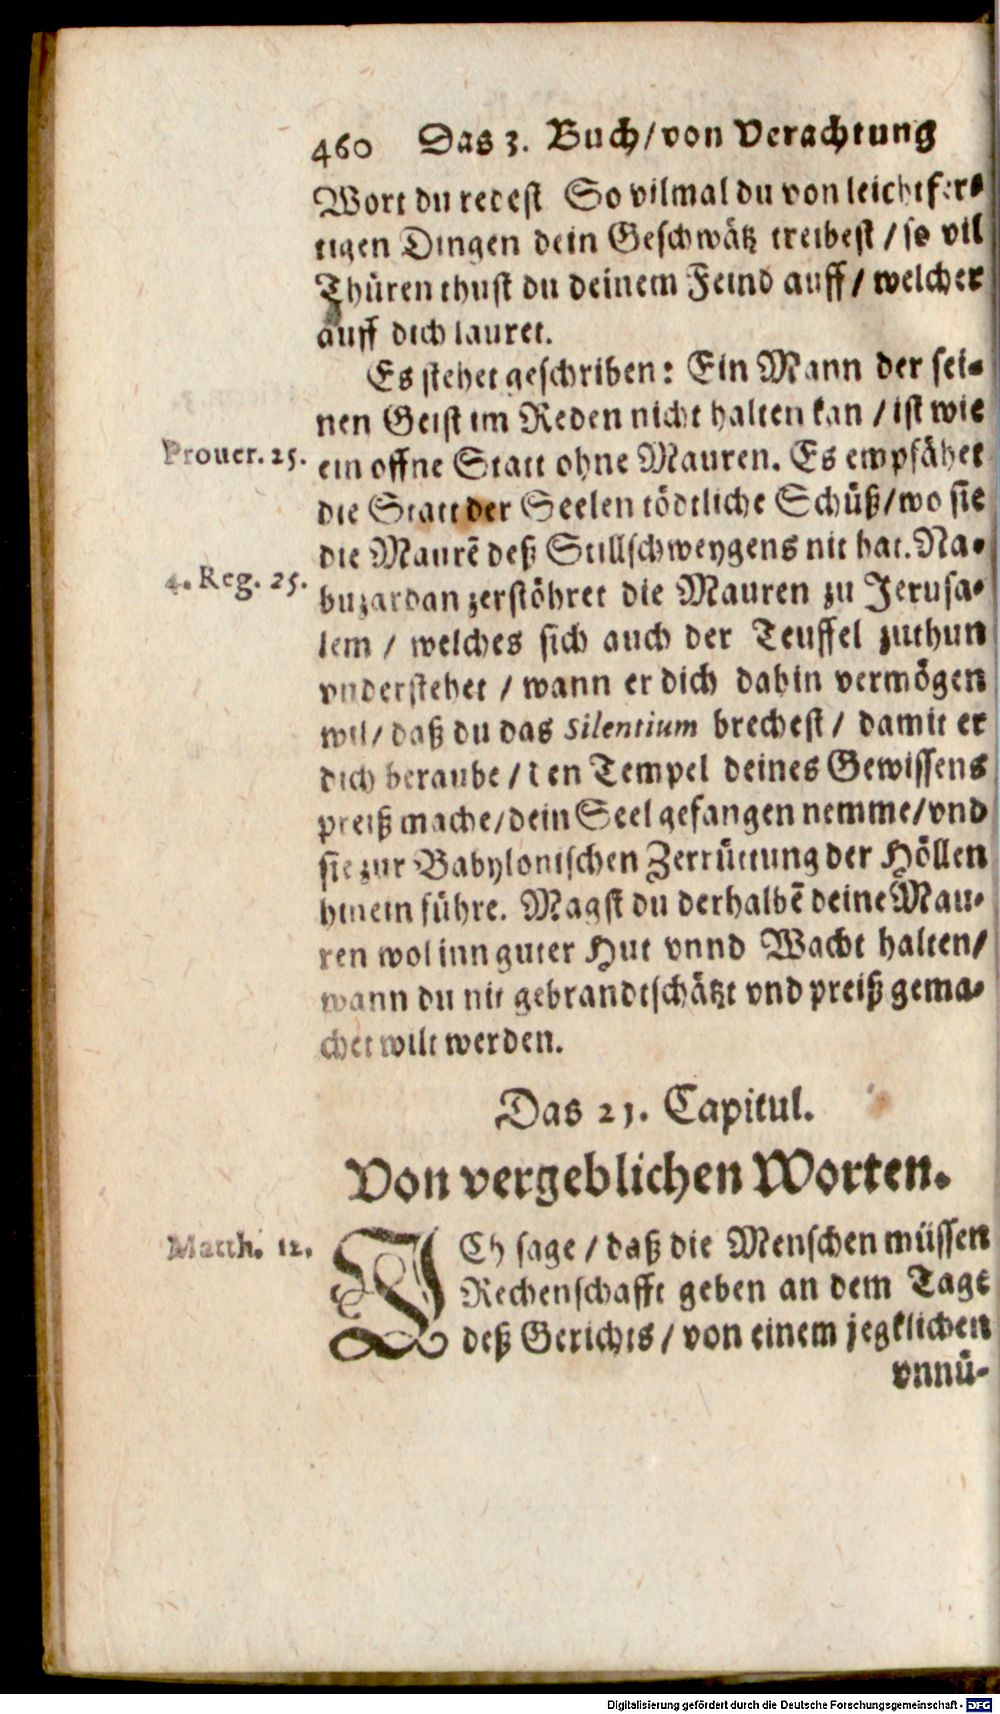 460 Das 3. Buch/von Verachtung
Wort du redest So vilmal du von leichtfer⸗
tigen Dingen dein Geschwätz treibest / so vil
Thüren thust du deinem Feind auff / welcher
auff dich lauret.
Es stehet geschriben: Ein Mann der sei⸗
nen Geist im Reden nicht halten kan / ist wie
Prouer. 25. ein offne Statt ohne Mauren. Es empfähet
die Statt der Seelen tödtliche Schüß/wo sie
die Maurē deß Stillschweygens nit hat. Na⸗
4. Reg. 25. buzardan zerstöhret die Mauren zu Jerusa⸗
lem / welches sich auch der Teuffel zuthun
vnderstehet / wann er dich dahin vermögen
wil/ daß du das Silentium brechest / damit er
dich beraube / den Tempel deines Gewissens
preiß mache/dein Seel gefangen nemme/vnd
sie zur Babylonischen Zerrüttung der Höllen
hinein führe. Magst du derhalbē deine Mau⸗
ren wol inn guter Hut vnnd Wacht halten/
wann du nit gebrandtschätzt vnd preiß gema⸗
chet wilt werden.
Das 21. Capitul.
Von vergeblichen Worten.
Matth. 12. ICh sage / daß die Menschen müssen
Rechenschafft geben an dem Tage
deß Gerichts / von einem jegklichen
vnnü⸗
Digitalisierung gefördert durch die Deutsche Forschungsgemeinschaft - DFG